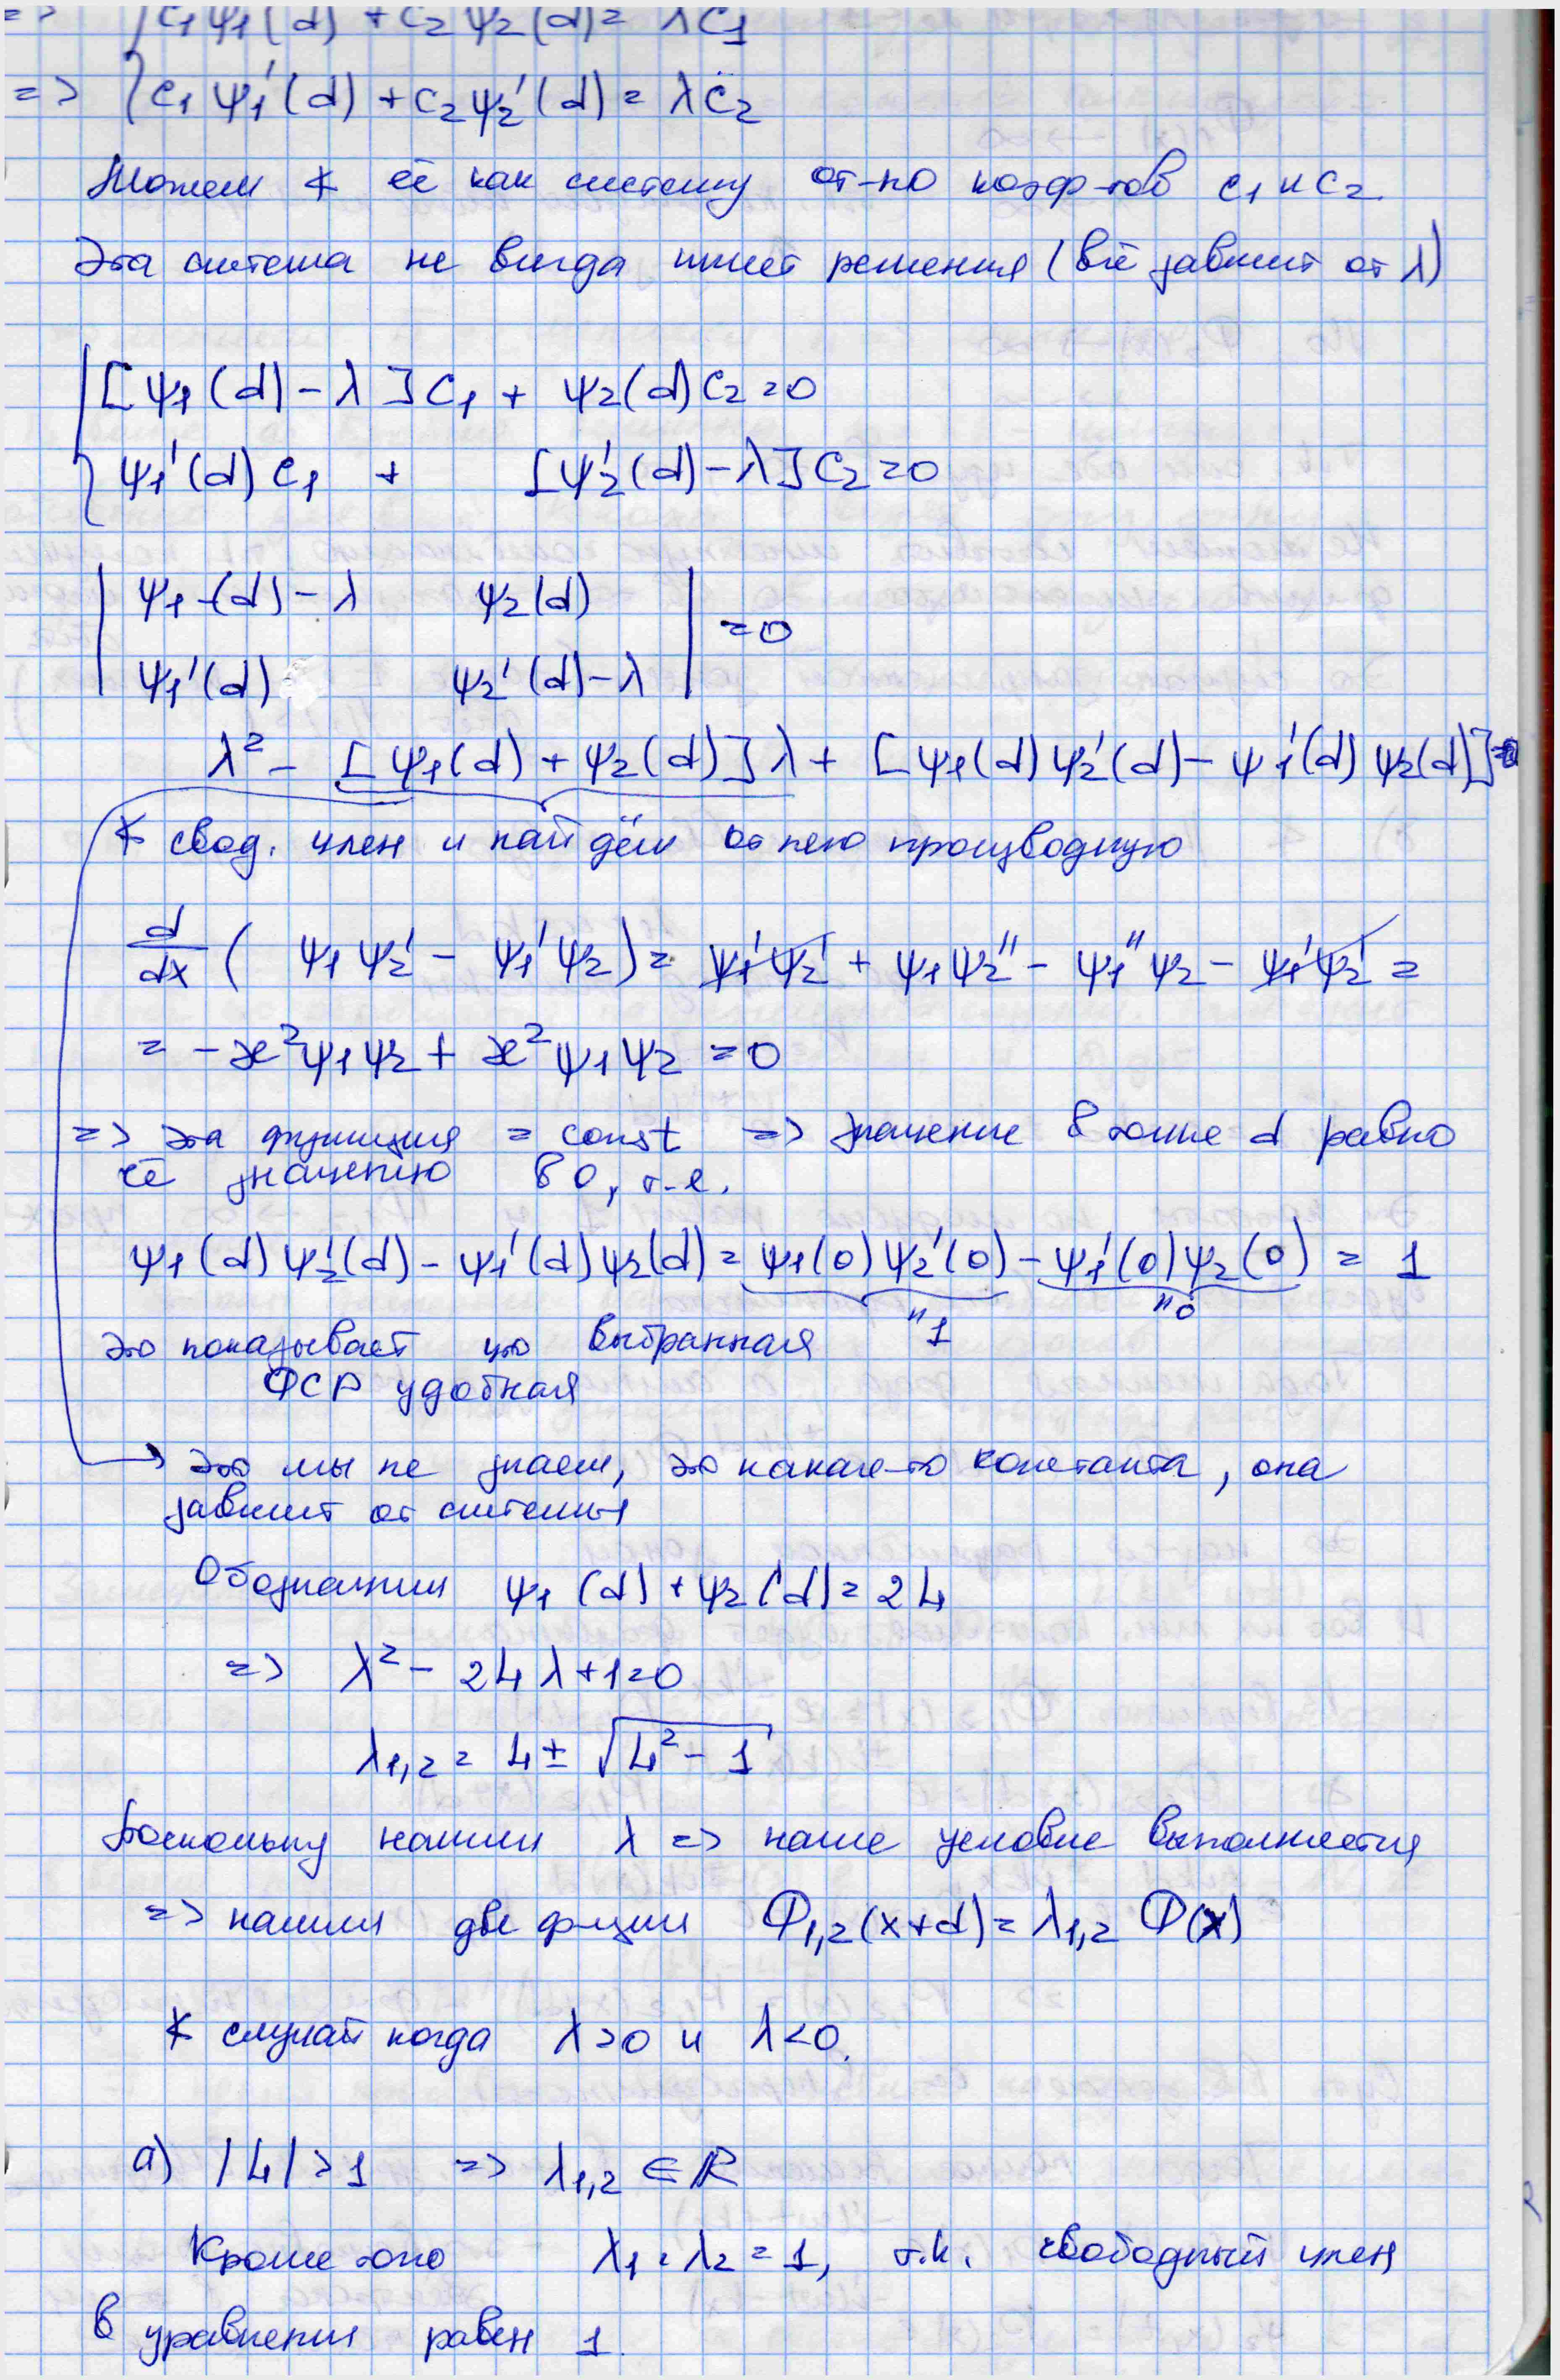 => { c₁ψ₁(d) + c₂ψ₂(d) = λc₁
=> { c₁ψ₁'(d) + c₂ψ₂'(d) = λc₂
Можем ∢ её как систему от-но коэф-тов c₁ и c₂
Эта система не всегда имеет решения (всё зависит от λ)
{ [ψ₁(d) - λ]c₁ + ψ₂(d)c₂ = 0
ψ₁'(d)c₁ + [ψ₂'(d) - λ]c₂ = 0
| ψ₁(d) - λ ψ₂(d) | = 0
ψ₁'(d) ψ₂'(d) - λ
λ² - [ψ₁(d) + ψ₂(d)]λ + [ψ₁(d)ψ₂'(d) - ψ₁'(d)ψ₂(d)] = 0
∢ свод. член и найдём от него производную
d/dx ( ψ₁ψ₂' - ψ₁'ψ₂ ) = ψ₁'ψ₂' + ψ₁ψ₂'' - ψ₁''ψ₂ - ψ₁'ψ₂' =
= -æ²ψ₁ψ₂ + æ²ψ₁ψ₂ = 0
=> эта функция = const => значение в точке d равно
её значению в 0, т.е.
ψ₁(d)ψ₂'(d) - ψ₁'(d)ψ₂(d) = ψ₁(0)ψ₂'(0) - ψ₁'(0)ψ₂(0) = 1
"1 "0
это показывает что выбранная
ФСР удобная
→ это мы не знаем, это какая-то константа, она
зависит от системы
Обозначим ψ₁(d) + ψ₂(d) = 2L
=> λ² - 2Lλ + 1 = 0
λ₁,₂ = L ± √(L² - 1)
Поскольку нашли λ => наше условие выполняется
=> нашли две ф-ции Φ₁,₂(x+d) = λ₁,₂ Φ(x)
∢ случай когда λ>0 и λ<0.
а) |L| > 1 => λ₁,₂ ∈ ℝ
Кроме того λ₁·λ₂ = 1, т.к. свободный член
в уравнении равен 1.